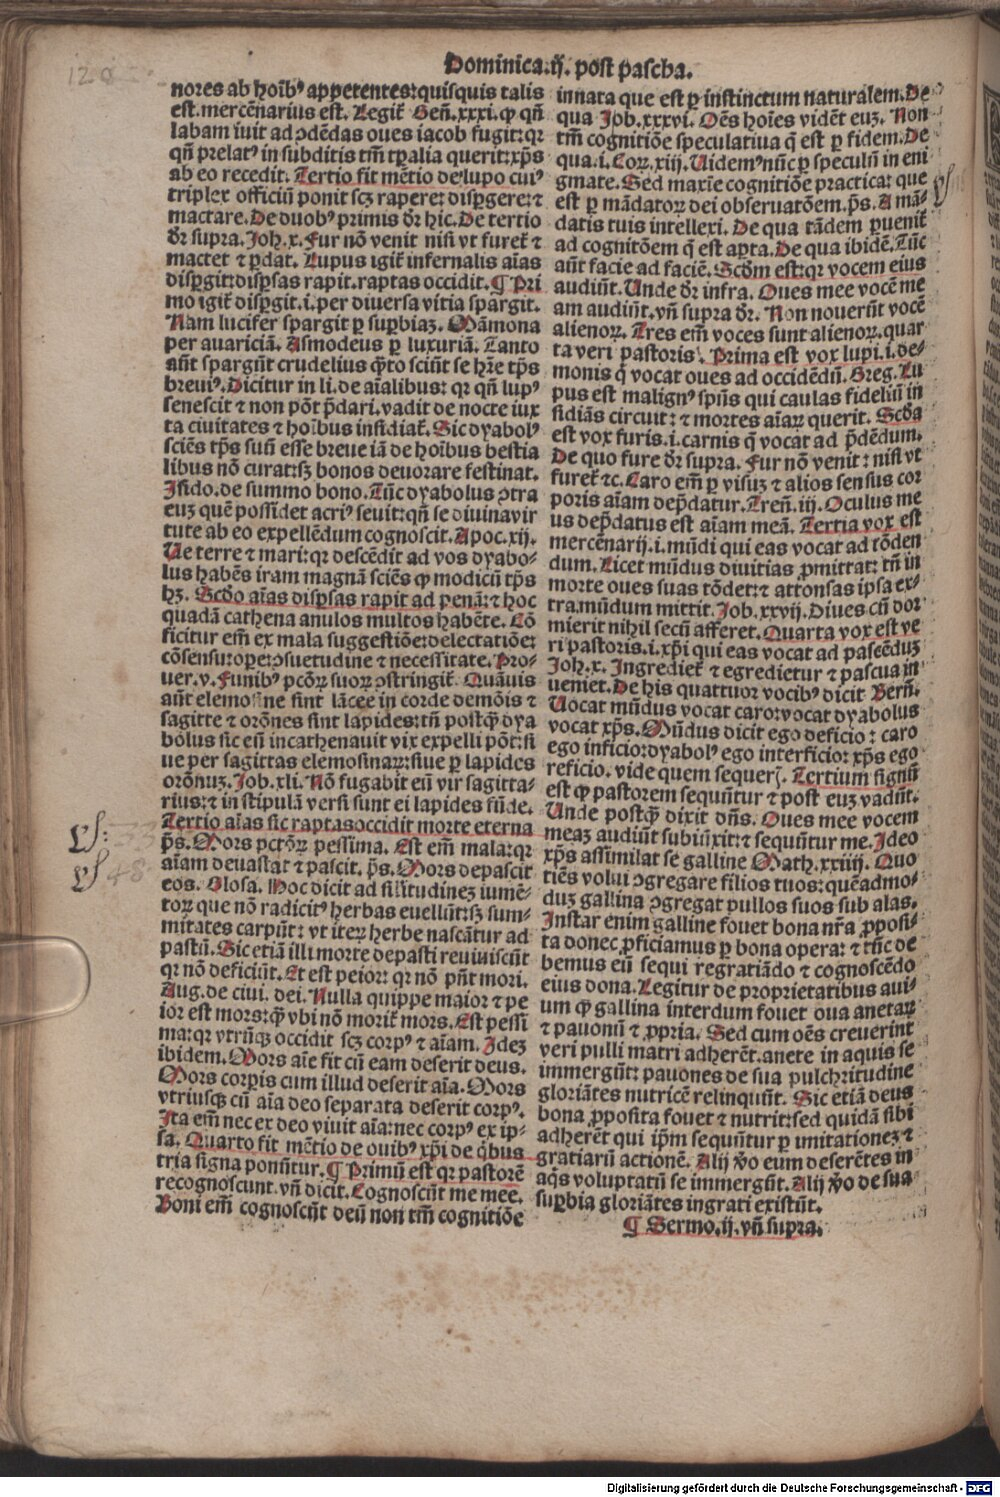 120
Dominica.ij. post pascha.
nores ab hoĩbꝰ appetentes:quisquis talis
est.mercẽnarius est. Legiť Geñ.xxxi.ꝙ qñ
labam iuit ad ɔdẽdas oues iacob fugit:qꝛ
qñ prelatꝰ in subditis tm̃ tꝑalia querit:xp̃s
ab eo recedit. Tertio fit mẽtio de lupo cuiꝰ
triplex officiũ ponit scꝫ rapere: disꝑgere:⁊
mactare. De duobꝰ primis dr̃ hic. De tertio
dr̃ supra. Joh̃.x. Fur nõ venit nisi vt fureť ⁊
mactet ⁊ ꝑdat. Lupus igiť infernalis aĩas
disꝑgit:disꝑsas rapit.raptas occidit. ¶ Pri
mo igiť disꝑgit.i.per diuersa vitia spargit.
Nam lucifer spargit ꝑ suꝑbiaꝫ. Mãmona
per auariciã. Asmodeus ꝑ luxuriã. Tanto
aũt spargũt crudelius q̃to sciũt se hr̃e tp̃s
breuiꝰ. Dicitur in li.de aĩalibus: qꝛ qñ lupꝰ
senescit ⁊ non põt p̃dari.vadit de nocte iux
ta ciuitates ⁊ hoĩbus insidiať. Sic dyabolꝰ
sciẽs tp̃s suũ esse breue iã de hoĩbus bestia
libus nõ curat:sꝫ bonos deuorare festinat.
Isido.de summo bono. Tũc dyabolus ɔtra
euꝫ quẽ possidet acriꝰ seuit:qñ se diuina vir
tute ab eo expellẽdum cognoscit. Apoc.xij.
Ue terre ⁊ mari: qꝛ descẽdit ad vos dyabo-
lus habẽs iram magnã sciẽs ꝙ modicũ tp̃s
hꝫ. Scďo aĩas disꝑsas rapit ad penã: ⁊ hoc
quadã cathena anulos multos habẽte. Cõ
ficitur em̃ ex mala suggestiõe: delectatiõe:
cõsensu:ope:ɔsuetudine ⁊ necessitate. Pro-
uer.v. Funibꝰ pcõꝝ suoꝝ ɔstringiť. Quãuis
aũt elemosine sint lãcee in corde demõis ⁊
sagitte ⁊ orõnes sint lapides:tñ postq̃ dya
bolus sic eũ incathenauit vix expelli põt:si
ue per sagittas elemosinaꝝ:siue ꝑ lapides
orõnuꝫ. Job.xli. Nõ fugabit eũ vir sagitta-
rius:⁊ in stipulã versi sunt ei lapides fũde.
Tertio aĩas sic raptas occidit morte eterna
p̃s. Mors pctõꝝ pessima. Est em̃ mala:qꝛ
aĩam deuastat ⁊ pascit. p̃s. Mors depascit
eos. Glosa. Hoc dicit ad sil̃itudineꝫ iumẽ-
toꝝ que nõ radicitꝰ herbas euellũt:sꝫ sum-
mitates carpũt: vt iteꝝ herbe nascãtur ad
pastũ. Sic etiã illi morte depasti reuiuiscũt
qꝛ nõ deficiũt. Et est peior: qꝛ nõ pñt mori.
Aug.de ciui. dei. Nulla quippe maior ⁊ pe
ior est mors:q̃ vbi nõ moriť mors. Est pessi
ma:qꝛ vtrũqꝫ occidit scꝫ corpꝰ ⁊ aĩam. Ideꝫ
ibidem. Mors aĩe fit cũ eam deserit deus.
Mors corꝑis cum illud deserit aĩa. Mors
vtriusqꝫ cũ aĩa deo separata deserit corpꝰ.
Ita em̃ nec ex deo viuit aĩa:nec corpꝰ ex ip-
sa. Quarto fit mẽtio de ouibꝰ xp̃i de q̃bus
tria signa ponũtur. ¶ Primũ est qꝛ pastorẽ
recognoscunt.vñ dicit. Cognoscũt me mee.
Boni em̃ cognoscũt deũ non tm̃ cognitiõe
innata que est ꝑ instinctum naturalem. De
qua Job.xxxvi. Oẽs hoĩes vidẽt euꝫ. Non
tm̃ cognitiõe speculatiua q̃ est ꝑ fidem. De
qua.i.Coꝝ.xiij. Uidemꝰ nũc ꝑ speculũ in eni
gmate. Sed maxĩe cognitiõe practica: que
est ꝑ mãdatoꝝ dei obseruatõem. p̃s. A mã-
datis tuis intellexi. De qua tãdem ꝑueniť
ad cognitõem q̃ est aꝑta. De qua ibidẽ. Tũc
aũt facie ad faciẽ. Scďm est:qꝛ vocem eius
audiũt. Unde dr̃ infra. Oues mee vocẽ me
am audiũt.vñ supra dr̃. Non nouerũt vocẽ
alienoꝝ. Tres em̃ voces sunt alienoꝝ.quar
ta veri pastoris. Prima est vox lupi.i.de-
monis q̃ vocat oues ad occidẽdũ. Greg. Lu
pus est malignꝰ spũs qui caulas fideliũ in
sidiãs circuit: ⁊ mortes aĩaꝝ querit. Scďa
est vox furis.i.carnis q̃ vocat ad p̃dẽdum.
De quo fure dr̃ supra. Fur nõ venit: nisi vt
fureť ⁊c. Caro em̃ ꝑ visuꝫ ⁊ alios sensus cor
poris aĩam dep̃datur. Treñ.iij. Oculus me
us dep̃datus est aĩam meã. Tertia vox est
mercẽnarij.i.mũdi qui eas vocat ad tõden
dum. Licet mũdus diuitias ꝓmittat: tñ in
morte oues suas tõdet:⁊ attonsas ipsa ex-
tra.mũdum mittit. Job.xxvij. Diues cũ dor
mierit nihil secũ afferet. Quarta vox est ve
ri pastoris.i.xp̃i qui eas vocat ad pascẽduꝫ
Joh̃.x. Ingredieť ⁊ egredietur ⁊ pascua in
ueniet. De his quattuor vocibꝰ dicit Berñ.
Uocat mũdus vocat caro:vocat dyabolus
vocat xp̃s. Mũdus dicit ego deficio: caro
ego inficio:dyabolꝰ ego interficio: xp̃s ego
reficio. vide quem sequeris. Tertium signũ
est ꝙ pastorem sequũtur ⁊ post euꝫ vadũt.
Unde postq̃ dixit dñs. Oues mee vocem
meaꝫ audiũt subiũxit:⁊ sequũtur me. Ideo
xp̃s assimilat se galline Math.xxiij. Quo
tiẽs volui ɔgregare filios tuos: quẽadmo-
duꝫ gallina ɔgregat pullos suos sub alas.
Instar enim galline fouet bona nr̃a ꝓposi-
ta donec ꝓficiamus ꝑ bona opera: ⁊ tũc de
bemus eũ sequi regratiãdo ⁊ cognoscẽdo
eius dona. Legitur de proprietatibus aui-
um ꝙ gallina interdum fouet oua anetaꝝ
⁊ pauonũ ⁊ ꝓpria. Sed cum oẽs creuerint
veri pulli matri adherẽt.anete in aquis se
immergũt: pauones de sua pulchritudine
gloriãtes nutricẽ relinquũt. Sic etiã deus
bona ꝓposita fouet ⁊ nutrit:sed quidã sibi
adherẽt qui ip̃m sequũtur ꝑ imitationeꝫ ⁊
gratiarũ actionẽ. Alij ṽo eum deserẽtes in
aq̃s voluptatũ se immergũt. Alij ṽo de sua
suꝑbia gloriãtes ingrati existũt.
¶ Sermo.ij.vñ supra.
ps: 33
ps 48
ps
Digitalisierung gefördert durch die Deutsche Forschungsgemeinschaft - DFG